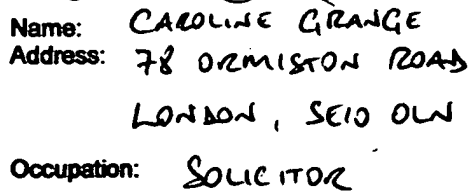 Name: CAROLINE GRANGE
Address: 78 ORMISTON ROAD
LONDON, SE10 0LN
Occupation: SOLICITOR